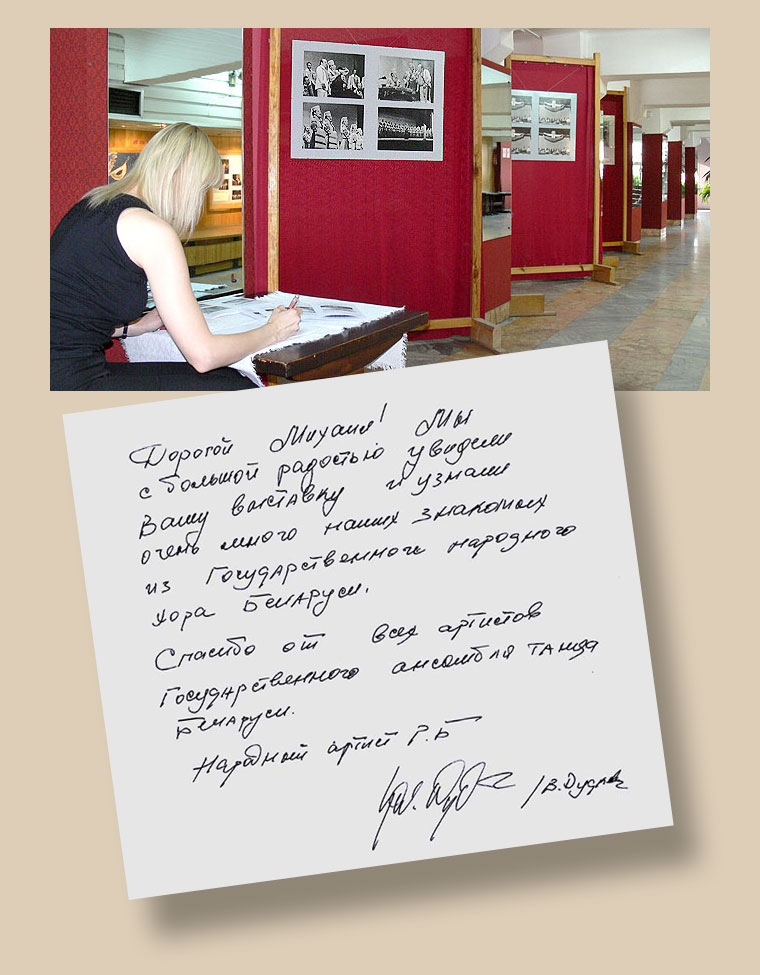 Дорогой Михаил! Мы
с большой радостью увидели
Вашу выставку и узнали
очень много наших знакомых
из Государственного народного
хора Беларуси.
Спасибо от всех артистов
Государственного ансамбля танца
Беларуси.
Народный артист Р.Б
/В.Дудкевич